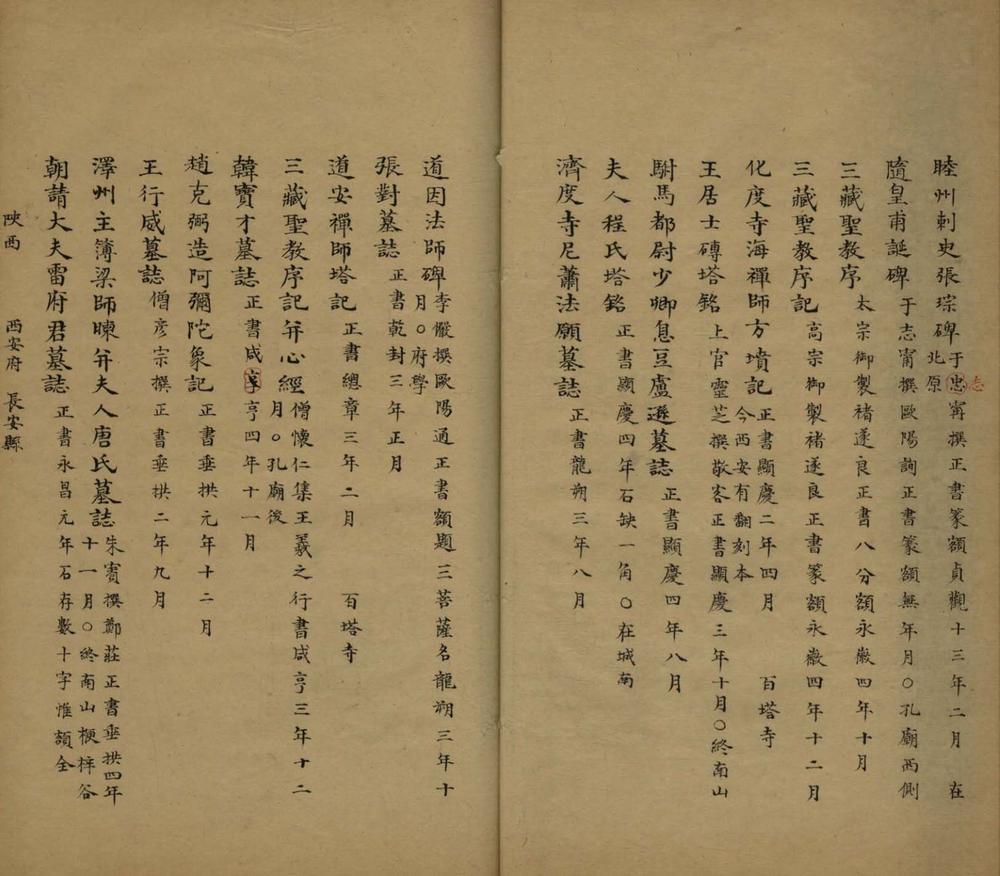 睦州刺史張琮碑于忠寗撰正書篆額貞觀十三年二月 在北原
志
隨皇甫誕碑于志寗撰歐陽詢正書篆額無年月〇孔廟西側
三藏聖教序太宗御製褚遂良正書八分額永徽四年十月
三藏聖教序記高宗御製褚遂良正書篆額永徽四年十二月
化度寺海禪師方墳記正書顯慶二年四月 百塔寺今西安有翻刻本
王居士磚塔銘上官靈芝撰敬客正書顯慶三年十月〇終南山
駙馬都尉少卿息豆盧遜墓誌正書顯慶四年八月
夫人程氏塔銘正書顯慶四年石缺一角〇在城南
濟度寺尼蕭法願墓誌正書龍朔三年八月
道因法師碑李儼撰歐陽通正書額題三菩薩名龍朔三年十月〇府學
張對墓誌正書乾封三年正月
道安禪師塔記正書總章三年二月 百塔寺
三藏聖教序記并心經僧懷仁集王羲之行書咸亨三年十二月〇孔廟後
韓寶才墓誌正書咸享亨四年十一月
趙克弼造阿彌陀象記正書垂拱元年十二月
王行威墓誌僧彦宗撰正書垂拱二年九月
澤州主簿梁師暕并夫人唐氏墓誌朱賓撰鄭莊正書垂拱四年十一月〇終南山梗梓谷
朝請大夫雷府君墓誌正書永昌元年石存數十字惟額全
陜西 西安府 長安縣